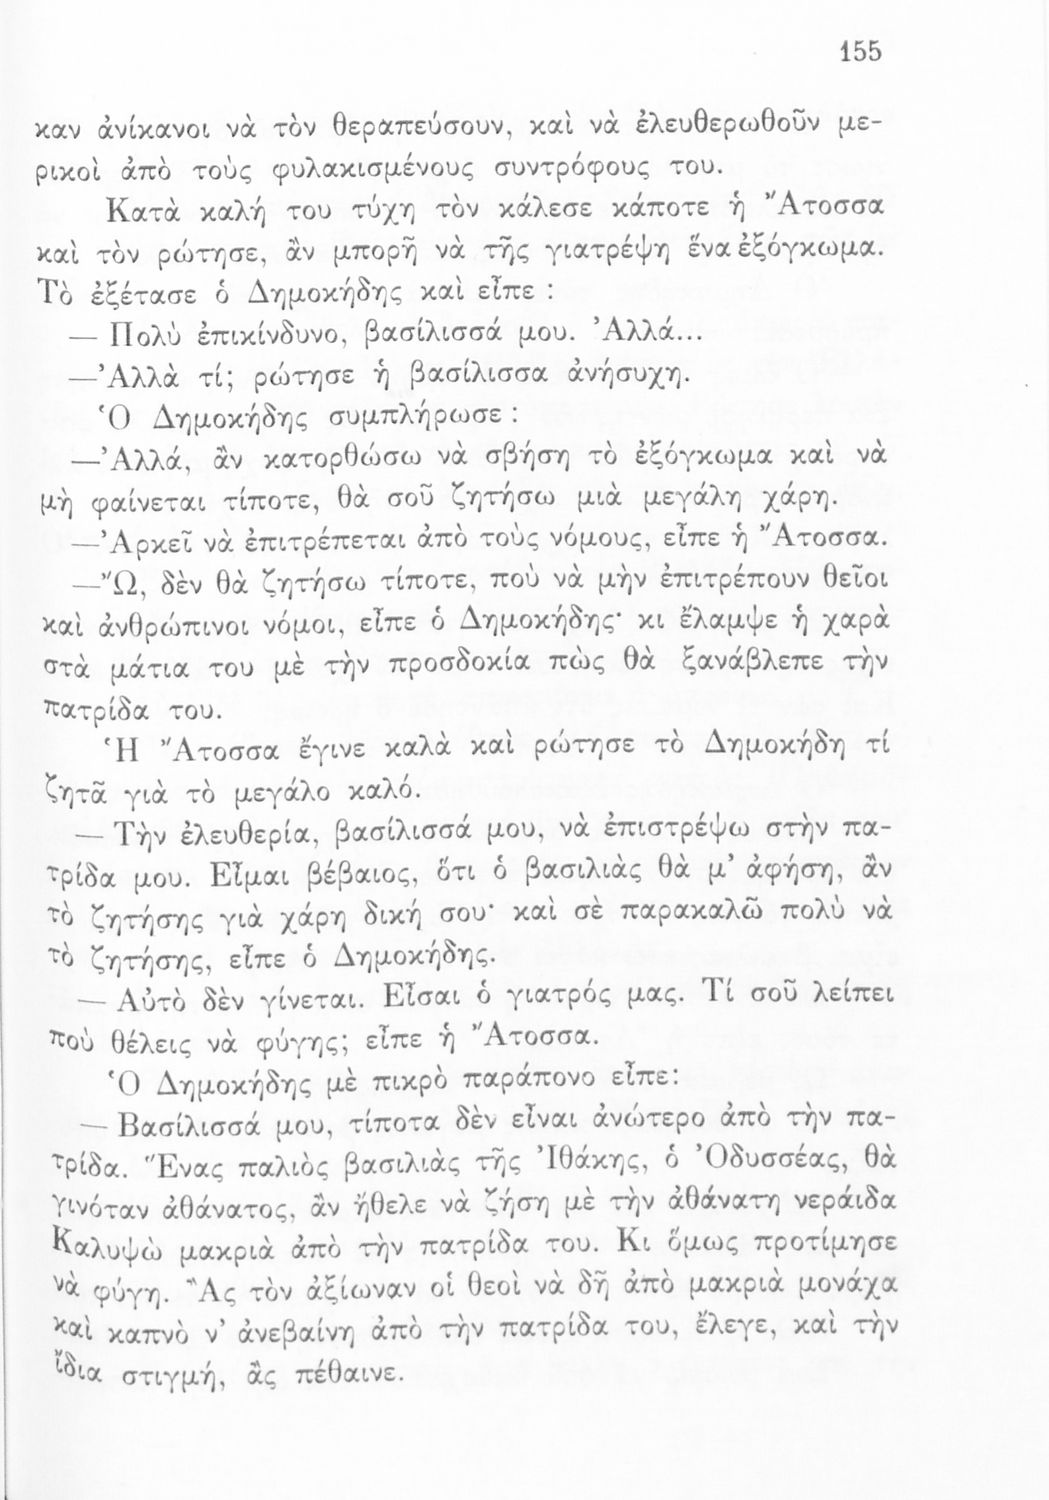 155
καν ἀνίκανοι νὰ τὸν θεραπεύσουν, καὶ νὰ ἐλευθερωθοῦν με-
ρικοὶ ἀπὸ τοὺς φυλακισμένους συντρόφους του.
Κατὰ καλή του τύχη τὸν κάλεσε κάποτε ἡ Ἄτοσσα
καὶ τὸν ρώτησε, ἂν μπορῆ νὰ τῆς γιατρέψη ἕνα ἐξόγκωμα.
Τὸ ἐξέτασε ὁ Δημοκήδης καὶ εἶπε :
— Πολὺ ἐπικίνδυνο, βασίλισσά μου. Ἀλλά...
—Ἀλλὰ τί; ρώτησε ἡ βασίλισσα ἀνήσυχη.
Ὁ Δημοκήδης συμπλήρωσε :
—Ἀλλά, ἂν κατορθώσω νὰ σβήση τὸ ἐξόγκωμα καὶ νὰ
μὴ φαίνεται τίποτε, θὰ σοῦ ζητήσω μιὰ μεγάλη χάρη.
—Ἀρκεῖ νὰ ἐπιτρέπεται ἀπὸ τοὺς νόμους, εἶπε ἡ Ἄτοσσα.
—Ὤ, δὲν θὰ ζητήσω τίποτε, ποὺ νὰ μὴν ἐπιτρέπουν θεῖοι
καὶ ἀνθρώπινοι νόμοι, εἶπε ὁ Δημοκήδης· κι ἔλαμψε ἡ χαρὰ
στὰ μάτια του μὲ τὴν προσδοκία πὼς θὰ ξανάβλεπε τὴν
πατρίδα του.
Ἡ Ἄτοσσα ἔγινε καλὰ καὶ ρώτησε τὸ Δημοκήδη τί
ζητᾶ γιὰ τὸ μεγάλο καλό.
— Τὴν ἐλευθερία, βασίλισσά μου, νὰ ἐπιστρέψω στὴν πα-
τρίδα μου. Εἶμαι βέβαιος, ὅτι ὁ βασιλιὰς θὰ μ' ἀφήση, ἂν
τὸ ζητήσης γιὰ χάρη δική σου· καὶ σὲ παρακαλῶ πολὺ νὰ
τὸ ζητήσης, εἶπε ὁ Δημοκήδης.
— Αὐτὸ δὲν γίνεται. Εἶσαι ὁ γιατρός μας. Τί σοῦ λείπει
ποὺ θέλεις νὰ φύγης; εἶπε ἡ Ἄτοσσα.
Ὁ Δημοκήδης μὲ πικρὸ παράπονο εἶπε:
— Βασίλισσά μου, τίποτα δὲν εἶναι ἀνώτερο ἀπὸ τὴν πα-
τρίδα. Ἕνας παλιὸς βασιλιὰς τῆς Ἰθάκης, ὁ Ὀδυσσέας, θὰ
γινόταν ἀθάνατος, ἂν ἤθελε νὰ ζήση μὲ τὴν ἀθάνατη νεράιδα
Καλυψὼ μακριὰ ἀπὸ τὴν πατρίδα του. Κι ὅμως προτίμησε
νὰ φύγη. Ἂς τὸν ἀξίωναν οἱ θεοὶ νὰ δῆ ἀπὸ μακριὰ μονάχα
καὶ καπνὸ ν' ἀνεβαίνη ἀπὸ τὴν πατρίδα του, ἔλεγε, καὶ τὴν
ἴδια στιγμή, ἂς πέθαινε.